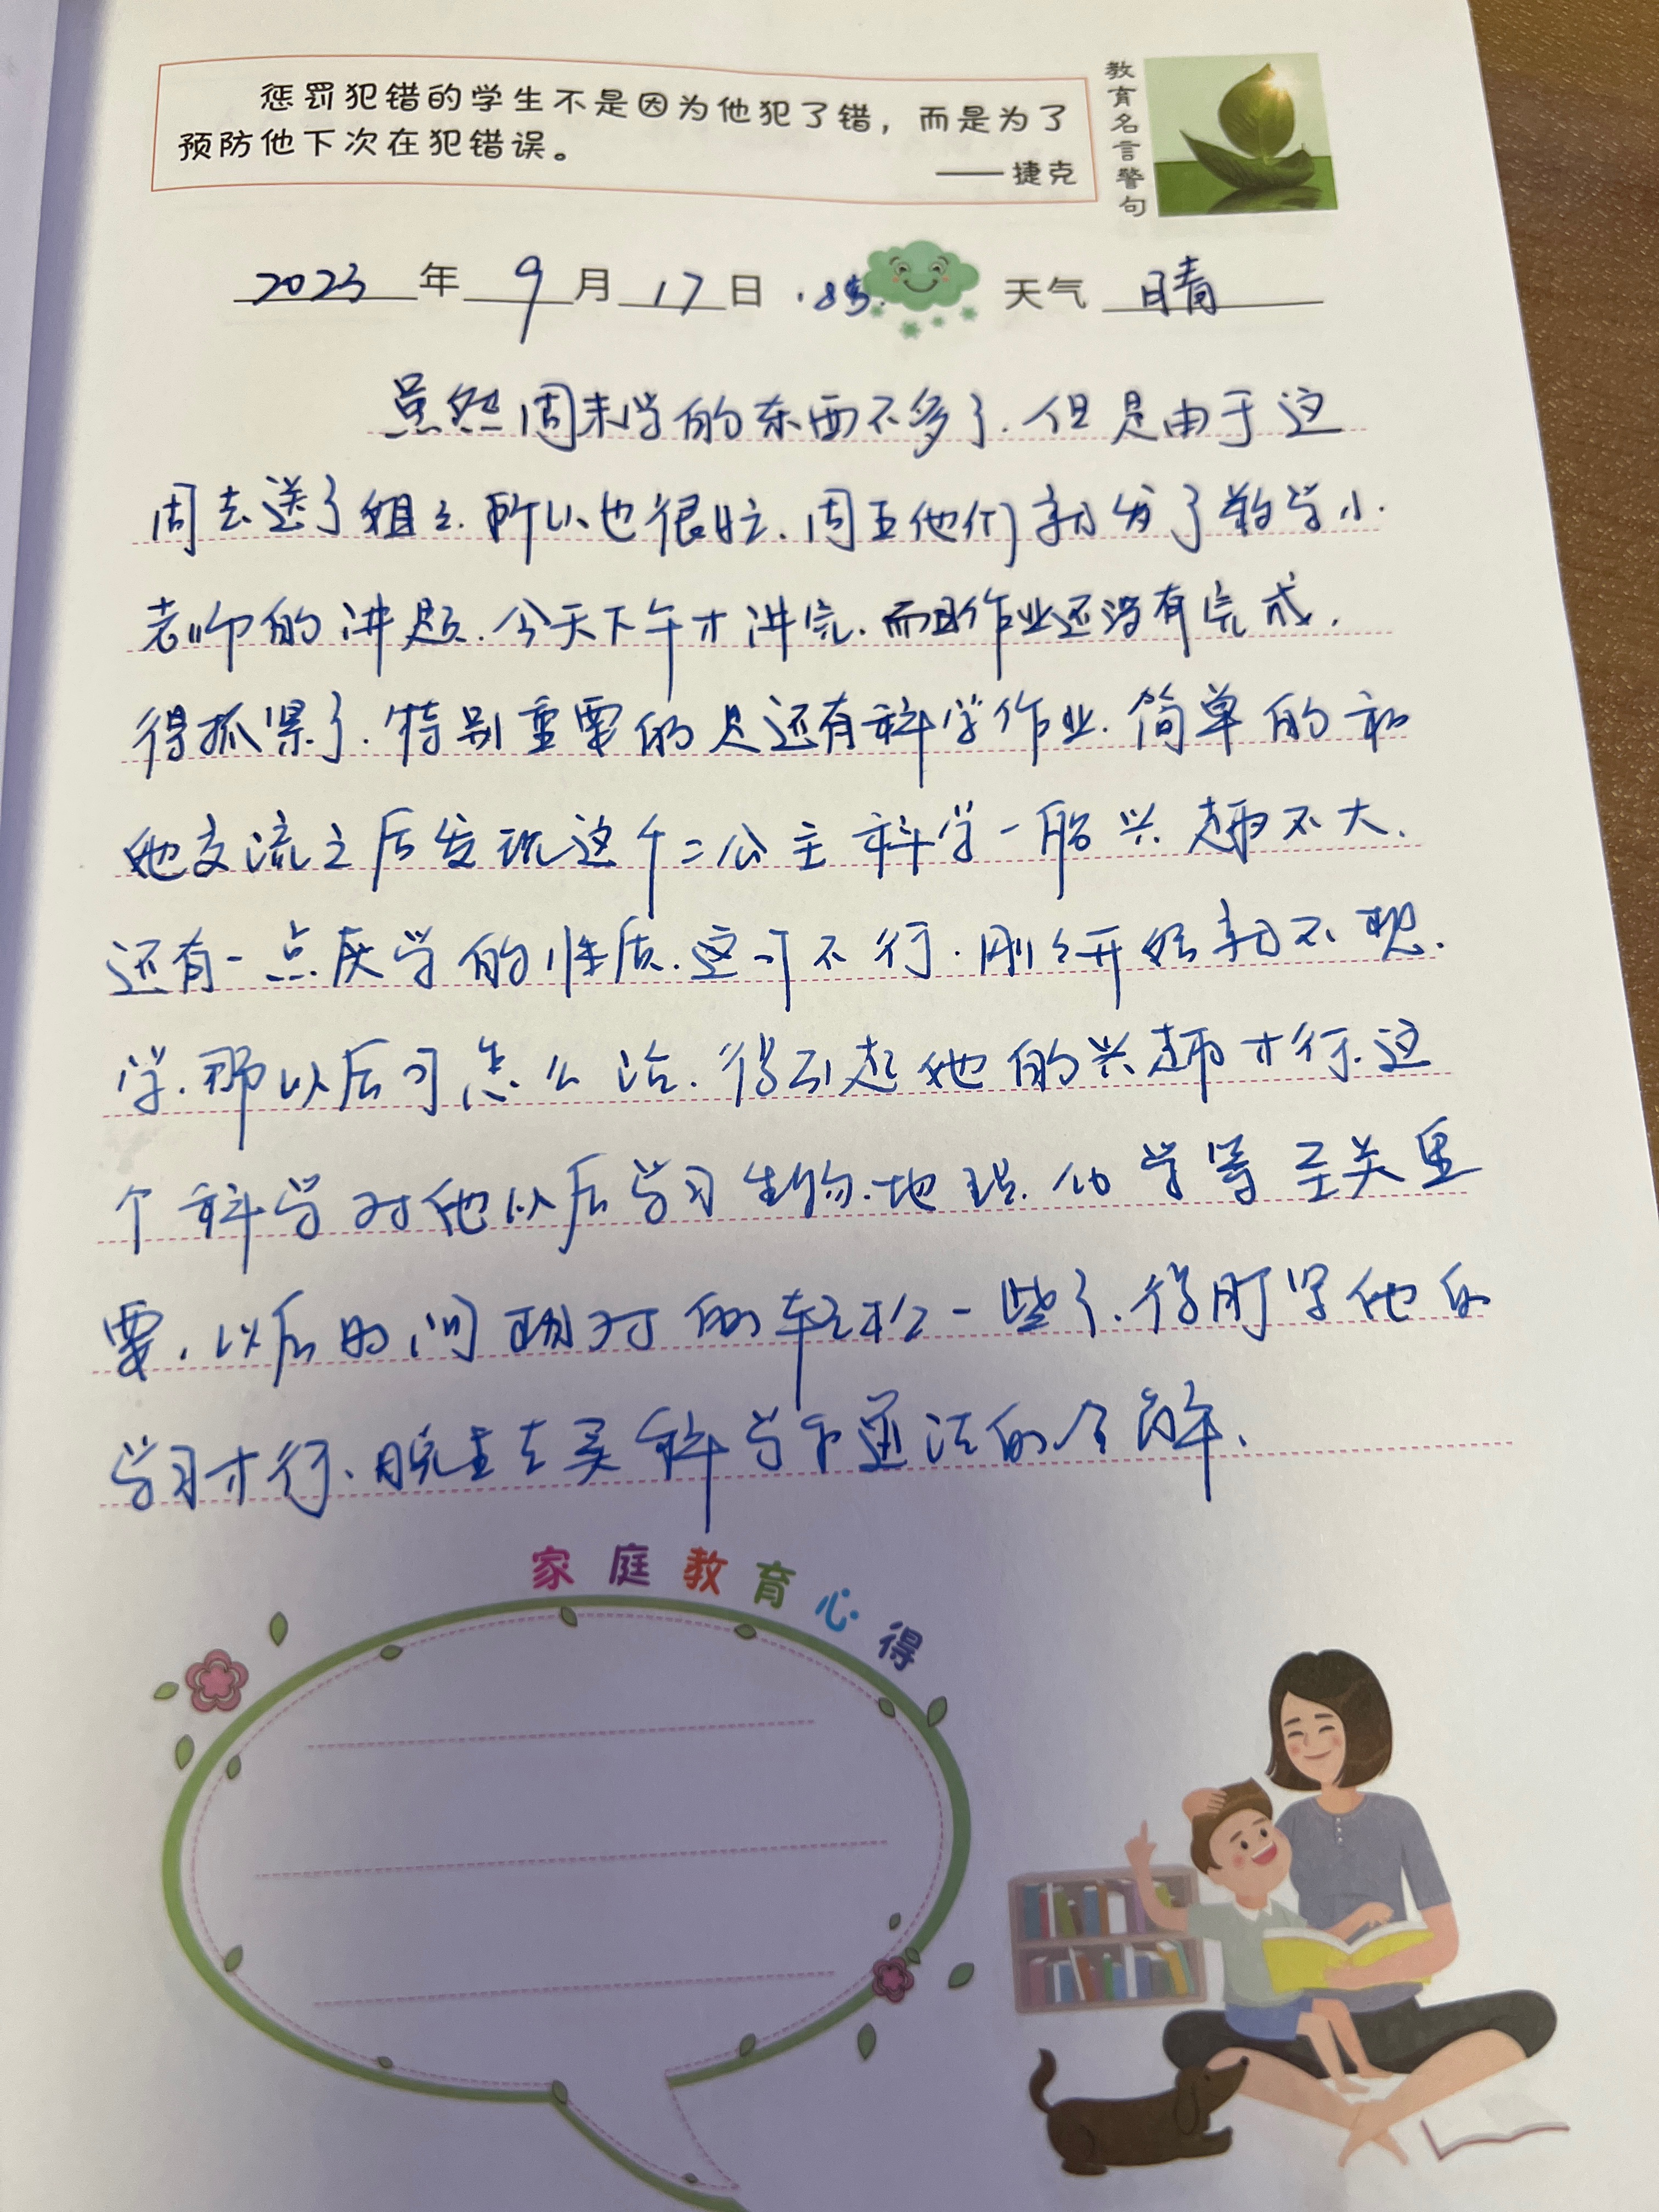 惩罚犯错的学生不是因为他犯了错，而是为了
预防他下次在犯错误。
——捷克
教育名言警句
2023年9月17日 天气 晴
虽然周末学的东西不多了.但是由于这
周去送了姐之.所以也很忙.周五他们就发了数学小.
老师的讲题.今天下午才讲完.而且作业还没有完成.
得抓紧了.特别重要的是还有科学作业.简单的和
她交流之后发现这个二公主科学一般兴趣不大.
还有一点厌学的性质.这可不行.刚々开始就不想.
学.那以后可怎么治.得引起她的兴趣才行.这
个科学对他以后学习生物.地理.化学等至关重
要.以后的问 对的轻松一些了.得盯牢他的
学习才行.直去买科学和道法的全解.
家庭教育心得